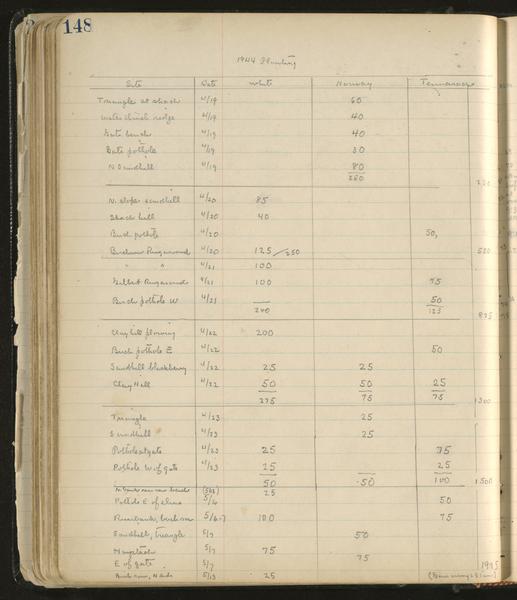 148
1944 Planting
Site Date White Norway Tamarack
Triangle at shack 4/19 60
4/19 40
Gate bench 4/19 40
Gate pothole 4/19
N Sandhill 4/19 80
N. slope sandhill 4/20 85
Shack hill 4/20 40
Birch pothole 4/20 50
4/20 125/250
" " 4/21 100
Gilbert 4/21 100 75
Birch pothole W 4/21 50
200 125
Clay hill plowing 4/22 200
Birch pothole E 4/22 50
Sandhill blackberry 4/22 25 25
Clay Hill 4/22 50 50 25
275 75 75
1300
Triangle 4/23 25
Sandhill 4/23 25
Pothole at gate 4/23 25 75
Pothole W. of gate 4/23 25 25
50 50 100 1500
25
Pothole E of 5/6 50
Riverbank, 5/6-7 100 75
Sandhill, triangle 5/7 50
Haystack 5/7 75
E of gate 5/7 75
5/13 25